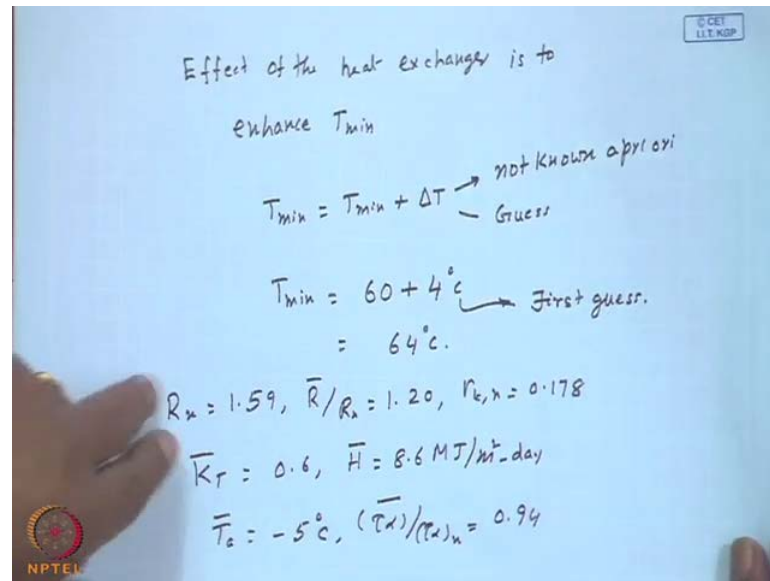 © CET
I.I.T. KGP
Effect of the heat exchanger is to
enhance Tmin
Tmin = Tmin + ΔT → not known apriori
– Guess
Tmin = 60 + 4°c → First guess.
= 64°c.
Rn = 1.59, R̄/Rn = 1.20, rt,n = 0.178
K̄T = 0.6, H̄ = 8.6 MJ/m²-day
T̄a = -5°c, (τ̄ᾱ)/(τα)n = 0.94
NPTEL